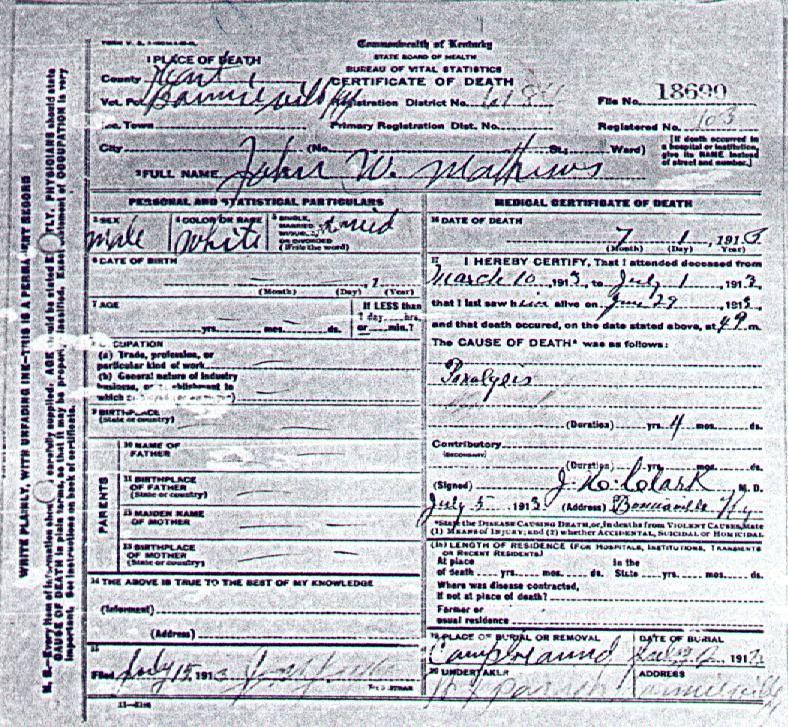 Commonwealth of Kentucky
STATE BOARD OF HEALTH
BUREAU OF VITAL STATISTICS
CERTIFICATE OF DEATH
1 PLACE OF DEATH
County Hart
Vot. Pct. Bonnieville Ky Registration District No. File No. 18690
Inc. Town Primary Registration Dist. No. Registered No. 103
City (No. St.; Ward)
[If death occurred in a hospital or institution, give its NAME instead of street and number.]
2 FULL NAME John W. Mathews
PERSONAL AND STATISTICAL PARTICULARS
3 SEX male
4 COLOR OR RACE White
5 SINGLE, MARRIED, WIDOWED, OR DIVORCED (Write the word)
6 DATE OF BIRTH
(Month) (Day) (Year)
7 AGE
yrs. mos. ds.
If LESS than 1 day, hrs. or min.?
OCCUPATION
(a) Trade, profession, or particular kind of work
(b) General nature of industry business, or establishment in which employed (or employer)
9 BIRTHPLACE (State or country)
PARENTS
10 NAME OF FATHER
11 BIRTHPLACE OF FATHER (State or country)
12 MAIDEN NAME OF MOTHER
13 BIRTHPLACE OF MOTHER (State or country)
14 THE ABOVE IS TRUE TO THE BEST OF MY KNOWLEDGE
(Informant)
(Address)
15
Filed July 15, 1913
REGISTRAR
MEDICAL CERTIFICATE OF DEATH
16 DATE OF DEATH
7 1, 1913
(Month) (Day) (Year)
17 I HEREBY CERTIFY, That I attended deceased from
March 10, 1913, to July 1 1913,
that I last saw him alive on June 29 1913,
and that death occured, on the date stated above, at m.
The CAUSE OF DEATH* was as follows:
Paralysis
(Duration) yrs. 4 mos. ds.
Contributory
(SECONDARY)
(Duration) yrs. mos. ds.
(Signed) Clark M. D.
July 5 1913 (Address) Bonnieville Ky
*State the DISEASE CAUSING DEATH, or, in deaths from VIOLENT CAUSES, state
(1) MEANS OF INJURY; and (2) whether ACCIDENTAL, SUICIDAL or HOMICIDAL
18 LENGTH OF RESIDENCE (FOR HOSPITALS, INSTITUTIONS, TRANSIENTS OR RECENT RESIDENTS)
At place of death yrs. mos. ds. In the State yrs. mos. ds.
Where was disease contracted,
if not at place of death?
Former or usual residence
19 PLACE OF BURIAL OR REMOVAL
Campground
DATE OF BURIAL
July 2 1913
20 UNDERTAKER
ADDRESS
Bonnieville
11-3146
WRITE PLAINLY, WITH UNFADING INK—THIS IS A PERMANENT RECORD
N. B.—Every item of information should be carefully supplied. AGE should be stated EXACTLY. PHYSICIANS should state
CAUSE OF DEATH in plain terms, so that it may be properly classified. Exact statement of OCCUPATION is very
important. See instructions on back of certificate.